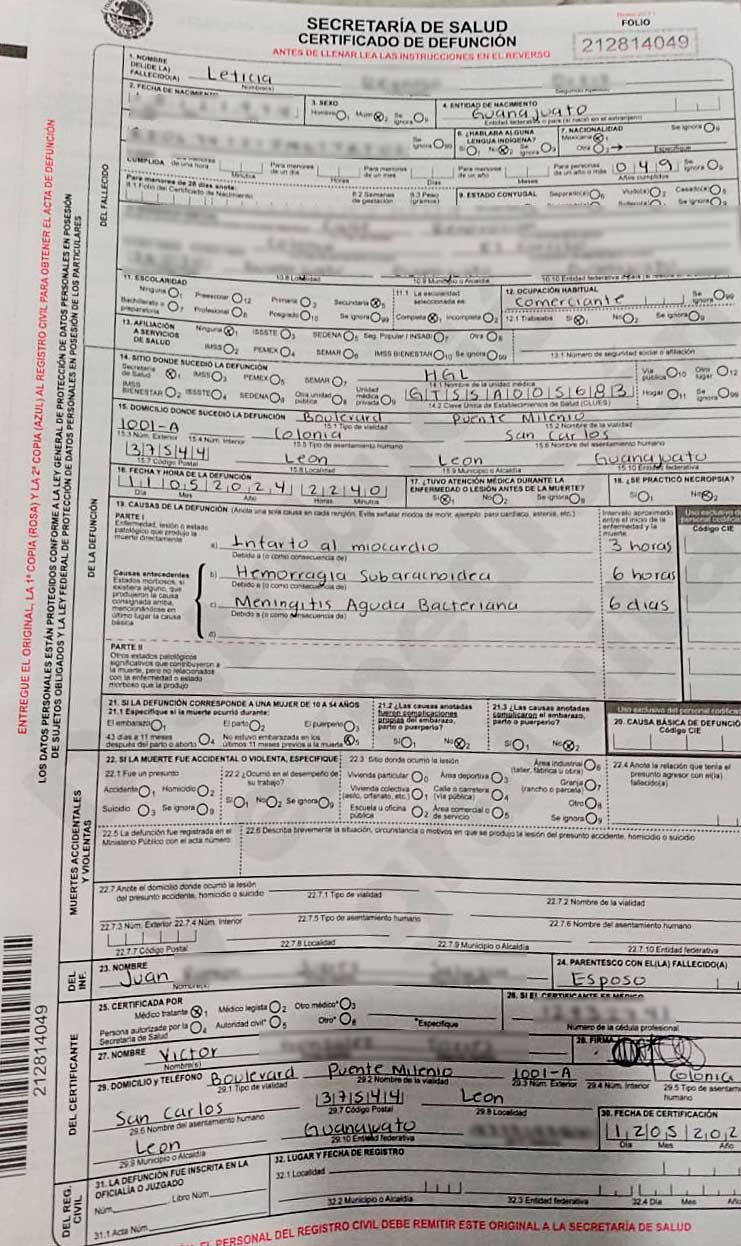 SECRETARÍA DE SALUD
CERTIFICADO DE DEFUNCIÓN
ANTES DE LLENAR LEA LAS INSTRUCCIONES EN EL REVERSO
FOLIO
212814049
ENTREGUE EL ORIGINAL, LA 1ª COPIA (ROSA) Y LA 2ª COPIA (AZUL) AL REGISTRO CIVIL PARA OBTENER EL ACTA DE DEFUNCIÓN
LOS DATOS PERSONALES ESTÁN PROTEGIDOS CONFORME A LA LEY GENERAL DE PROTECCIÓN DE DATOS PERSONALES EN POSESIÓN
DE SUJETOS OBLIGADOS Y LA LEY FEDERAL DE PROTECCIÓN DE DATOS PERSONALES EN POSESIÓN DE LOS PARTICULARES
212814049
DEL FALLECIDO
1. NOMBRE DEL(DE LA) FALLECIDO(A) Leticia
Nombre(s) Segundo Apellido
2. FECHA DE NACIMIENTO
3. SEXO Hombre 1 Mujer ⊗2 Se ignora 9
4. ENTIDAD DE NACIMIENTO Guanajuato
Entidad federativa o país (si nació en el extranjero)
6. ¿HABLABA ALGUNA LENGUA INDÍGENA? Sí 1 No ⊗2 Se ignora 9
7. NACIONALIDAD Mexicana ⊗1 Otra 2 Especifique Se ignora 9
CUMPLIDA Para menores de una hora Minutos Para menores de un día Horas Para menores de un mes Días Para menores de un año Meses Para personas de un año o más 049 Años cumplidos Se ignora 9
Para menores de 28 días anote:
8.1 Folio del Certificado de Nacimiento 8.2 Semanas de gestación 8.3 Peso (gramos)
9. ESTADO CONYUGAL Separado(a) 6 Viudo(a) 2 Casado(a) 5
10.8 Localidad 10.9 Municipio o Alcaldía 10.10 Entidad federativa
11. ESCOLARIDAD
Ninguna 1 Preescolar 12 Primaria 3 Secundaria ⊗5
Bachillerato o preparatoria 7 Profesional 8 Posgrado 10 Se ignora 99
11.1 La escolaridad seleccionada es: Completa ⊗1 Incompleta 2
12. OCUPACIÓN HABITUAL Comerciante Se ignora 99
12.1 Trabajaba Sí ⊗1 No 2 Se ignora 9
13. AFILIACIÓN A SERVICIOS DE SALUD
Ninguna ⊗1 ISSSTE 3 SEDENA 5 Seg. Popular / INSABI 7 Otra 8
IMSS 2 PEMEX 4 SEMAR 6 IMSS BIENESTAR 10 Se ignora 99
13.1 Número de seguridad social o afiliación
DE LA DEFUNCIÓN
14. SITIO DONDE SUCEDIÓ LA DEFUNCIÓN
Secretaría de Salud ⊗1 IMSS 3 PEMEX 5 SEMAR 7 HGL
14.1 Nombre de la unidad médica
Vía pública 10 Otro lugar 12
IMSS BIENESTAR 2 ISSSTE 4 SEDENA 6 Otra unidad pública 8 Unidad médica privada 9 GTSSA005683
14.2 Clave Única de Establecimientos de Salud (CLUES)
Hogar 11 Se ignora 99
15. DOMICILIO DONDE SUCEDIÓ LA DEFUNCIÓN Boulevard Puente Milenio
15.1 Tipo de vialidad 15.2 Nombre de la vialidad
1001-A Colonia San Carlos
15.3 Núm. Exterior 15.4 Núm. Interior 15.5 Tipo de asentamiento humano 15.6 Nombre del asentamiento humano
37544 Leon Leon Guanajuato
15.7 Código Postal 15.8 Localidad 15.9 Municipio o Alcaldía 15.10 Entidad federativa
16. FECHA Y HORA DE LA DEFUNCIÓN
11 05 2024 22 40
Día Mes Año Horas Minutos
17. ¿TUVO ATENCIÓN MÉDICA DURANTE LA ENFERMEDAD O LESIÓN ANTES DE LA MUERTE?
Sí ⊗1 No 2 Se ignora 9
18. ¿SE PRACTICÓ NECROPSIA?
Sí 1 No ⊗2
19. CAUSAS DE LA DEFUNCIÓN (Anote una sola causa en cada renglón. Evite señalar modos de morir, ejemplo: paro cardiaco, astenia, etc.)
Intervalo aproximado entre el inicio de la enfermedad y la muerte
Uso exclusivo del personal codificador
Código CIE
PARTE I
Enfermedad, lesión o estado patológico que produjo la muerte directamente
a) Infarto al miocardio 3 horas
Debido a (o como consecuencia de)
Causas antecedentes
Estados morbosos, si existiera alguno, que produjeron la causa consignada arriba, mencionándose en último lugar la causa básica
b) Hemorragia Subaracnoidea 6 horas
Debido a (o como consecuencia de)
c) Meningitis Aguda Bacteriana 6 dias
Debido a (o como consecuencia de)
d)
PARTE II
Otros estados patológicos significativos que contribuyeron a la muerte, pero no relacionados con la enfermedad o estado morboso que la produjo
21. SI LA DEFUNCIÓN CORRESPONDE A UNA MUJER DE 10 A 54 AÑOS
21.1 Especifique si la muerte ocurrió durante:
El embarazo 1 El parto 2 El puerperio 3
43 días a 11 meses después del parto o aborto 4 No estuvo embarazada en los últimos 11 meses previos a la muerte ⊗5
21.2 ¿Las causas anotadas fueron complicaciones propias del embarazo, parto o puerperio?
Sí 1 No ⊗2
21.3 ¿Las causas anotadas complicaron el embarazo, parto o puerperio?
Sí 1 No ⊗2
Uso exclusivo del personal codificador
20. CAUSA BÁSICA DE DEFUNCIÓN
Código CIE
MUERTES ACCIDENTALES Y VIOLENTAS
22. SI LA MUERTE FUE ACCIDENTAL O VIOLENTA, ESPECIFIQUE
22.1 Fue un presunto
Accidente 1 Homicidio 2
Suicidio 3 Se ignora 9
22.2 ¿Ocurrió en el desempeño de su trabajo?
Sí 1 No 2 Se ignora 9
22.3 Sitio donde ocurrió la lesión
Vivienda particular 0 Área deportiva 3 Área industrial (taller, fábrica u obra) 6
Vivienda colectiva (asilo, orfanato, etc.) 1 Calle o carretera (vía pública) 4 Granja (rancho o parcela) 7
Escuela u oficina pública 2 Área comercial o de servicio 5 Otro 8
Se ignora 9
22.4 Anote la relación que tenía el presunto agresor con el(la) fallecido(a)
22.5 La defunción fue registrada en el Ministerio Público con el acta número:
22.6 Describa brevemente la situación, circunstancia o motivos en que se produjo la lesión del presunto accidente, homicidio o suicidio
22.7 Anote el domicilio donde ocurrió la lesión del presunto accidente, homicidio o suicidio
22.7.1 Tipo de vialidad 22.7.2 Nombre de la vialidad
22.7.3 Núm. Exterior 22.7.4 Núm. Interior 22.7.5 Tipo de asentamiento humano 22.7.6 Nombre del asentamiento humano
22.7.7 Código Postal 22.7.8 Localidad 22.7.9 Municipio o Alcaldía 22.7.10 Entidad federativa
DEL INF.
23. NOMBRE Juan
Nombre(s)
24. PARENTESCO CON EL(LA) FALLECIDO(A)
Esposo
DEL CERTIFICANTE
25. CERTIFICADA POR
Médico tratante ⊗1 Médico legista 2 Otro médico* 3
Persona autorizada por la Secretaría de Salud 4 Autoridad civil* 5 Otro* 8 *Especifique
26. SI EL CERTIFICANTE ES MÉDICO
Número de la cédula profesional
27. NOMBRE Victor
Nombre(s)
28. FIRMA
29. DOMICILIO Y TELÉFONO Boulevard Puente Milenio 1001-A Colonia
29.1 Tipo de vialidad 29.2 Nombre de la vialidad 29.3 Núm. Exterior 29.4 Núm. Interior 29.5 Tipo de asentamiento humano
San Carlos 37544 Leon
29.6 Nombre del asentamiento humano 29.7 Código Postal 29.8 Localidad
Leon Guanajuato
29.9 Municipio o Alcaldía 29.10 Entidad federativa
30. FECHA DE CERTIFICACIÓN
12 05 202
Día Mes Año
DEL REG. CIVIL
31. LA DEFUNCIÓN FUE INSCRITA EN LA OFICIALÍA O JUZGADO
Núm. Libro Núm.
31.1 Acta Núm.
32. LUGAR Y FECHA DE REGISTRO
32.1 Localidad
32.2 Municipio o Alcaldía 32.3 Entidad federativa 32.4 Día Mes Año
EL PERSONAL DEL REGISTRO CIVIL DEBE REMITIR ESTE ORIGINAL A LA SECRETARÍA DE SALUD